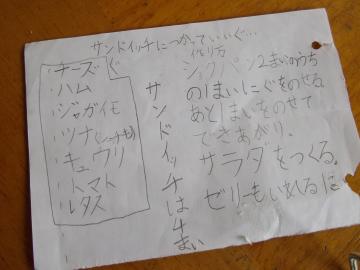 サンドイッチにつかっていいぐ…
ぐ
・チーズ
・ハム
・ジャガイモ
・ツナ
・キュウリ
・トマト
・レタス
サンドイッチは4まい
作り方
ショクパン2まいのうち
の1まいにぐをのせる
あと1まいをのせて
できあがり。
サラダをつくる。
ゼリーもいれる